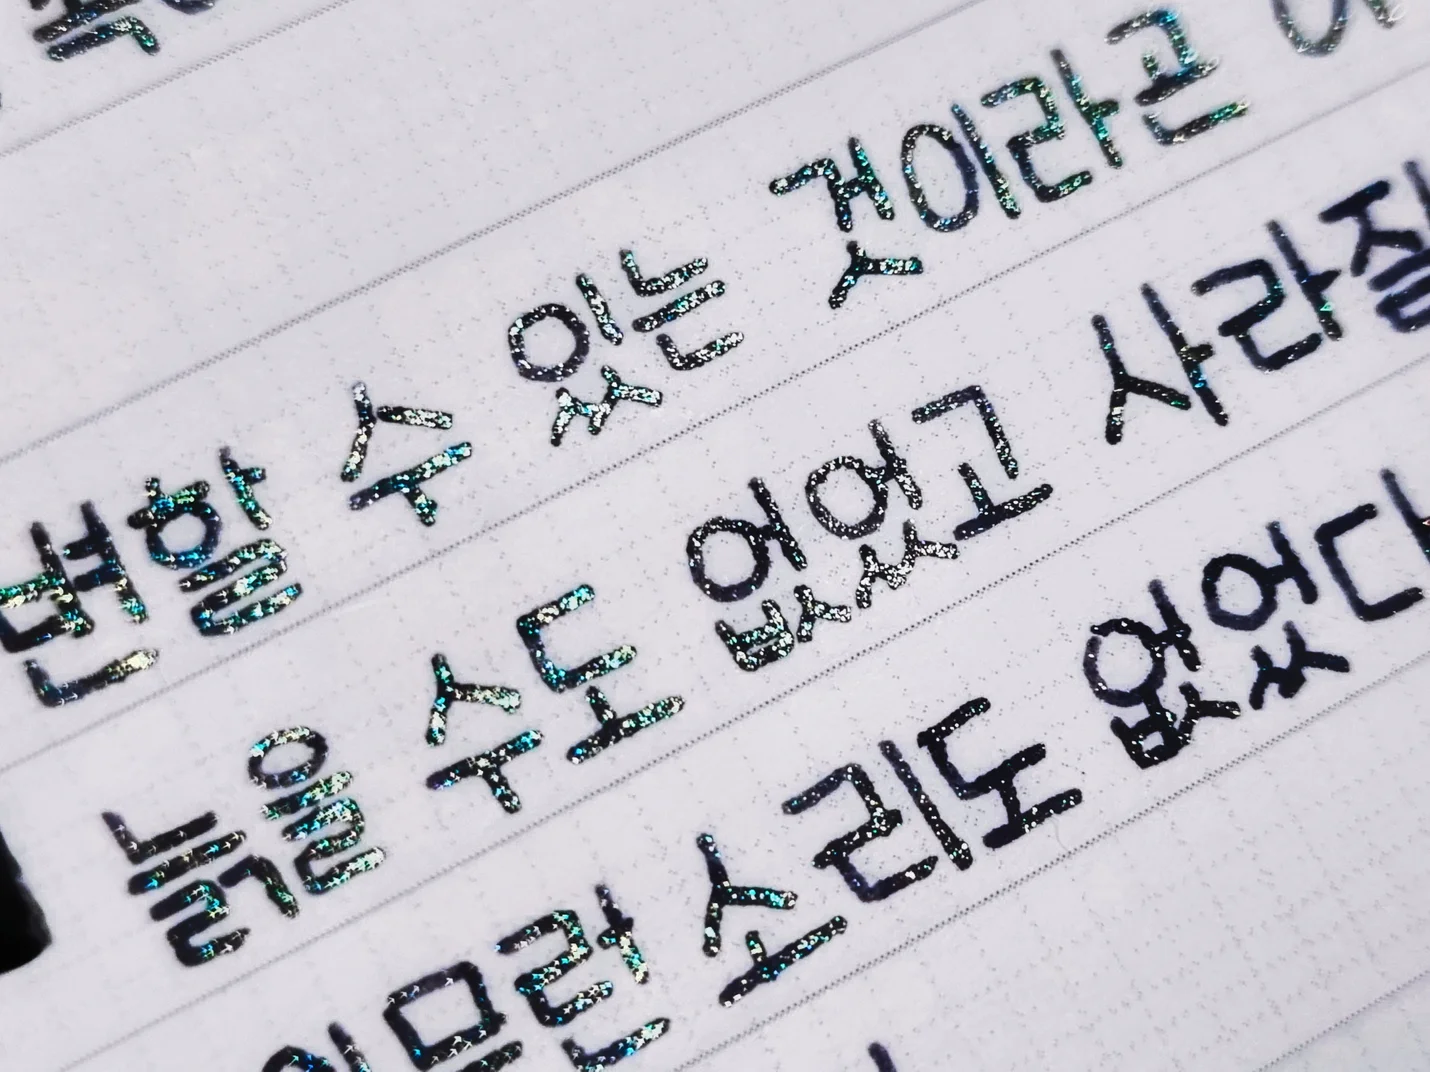 변할 수 있는 것이라곤
늙을 수도 없었고 사라질
소리도 없었다